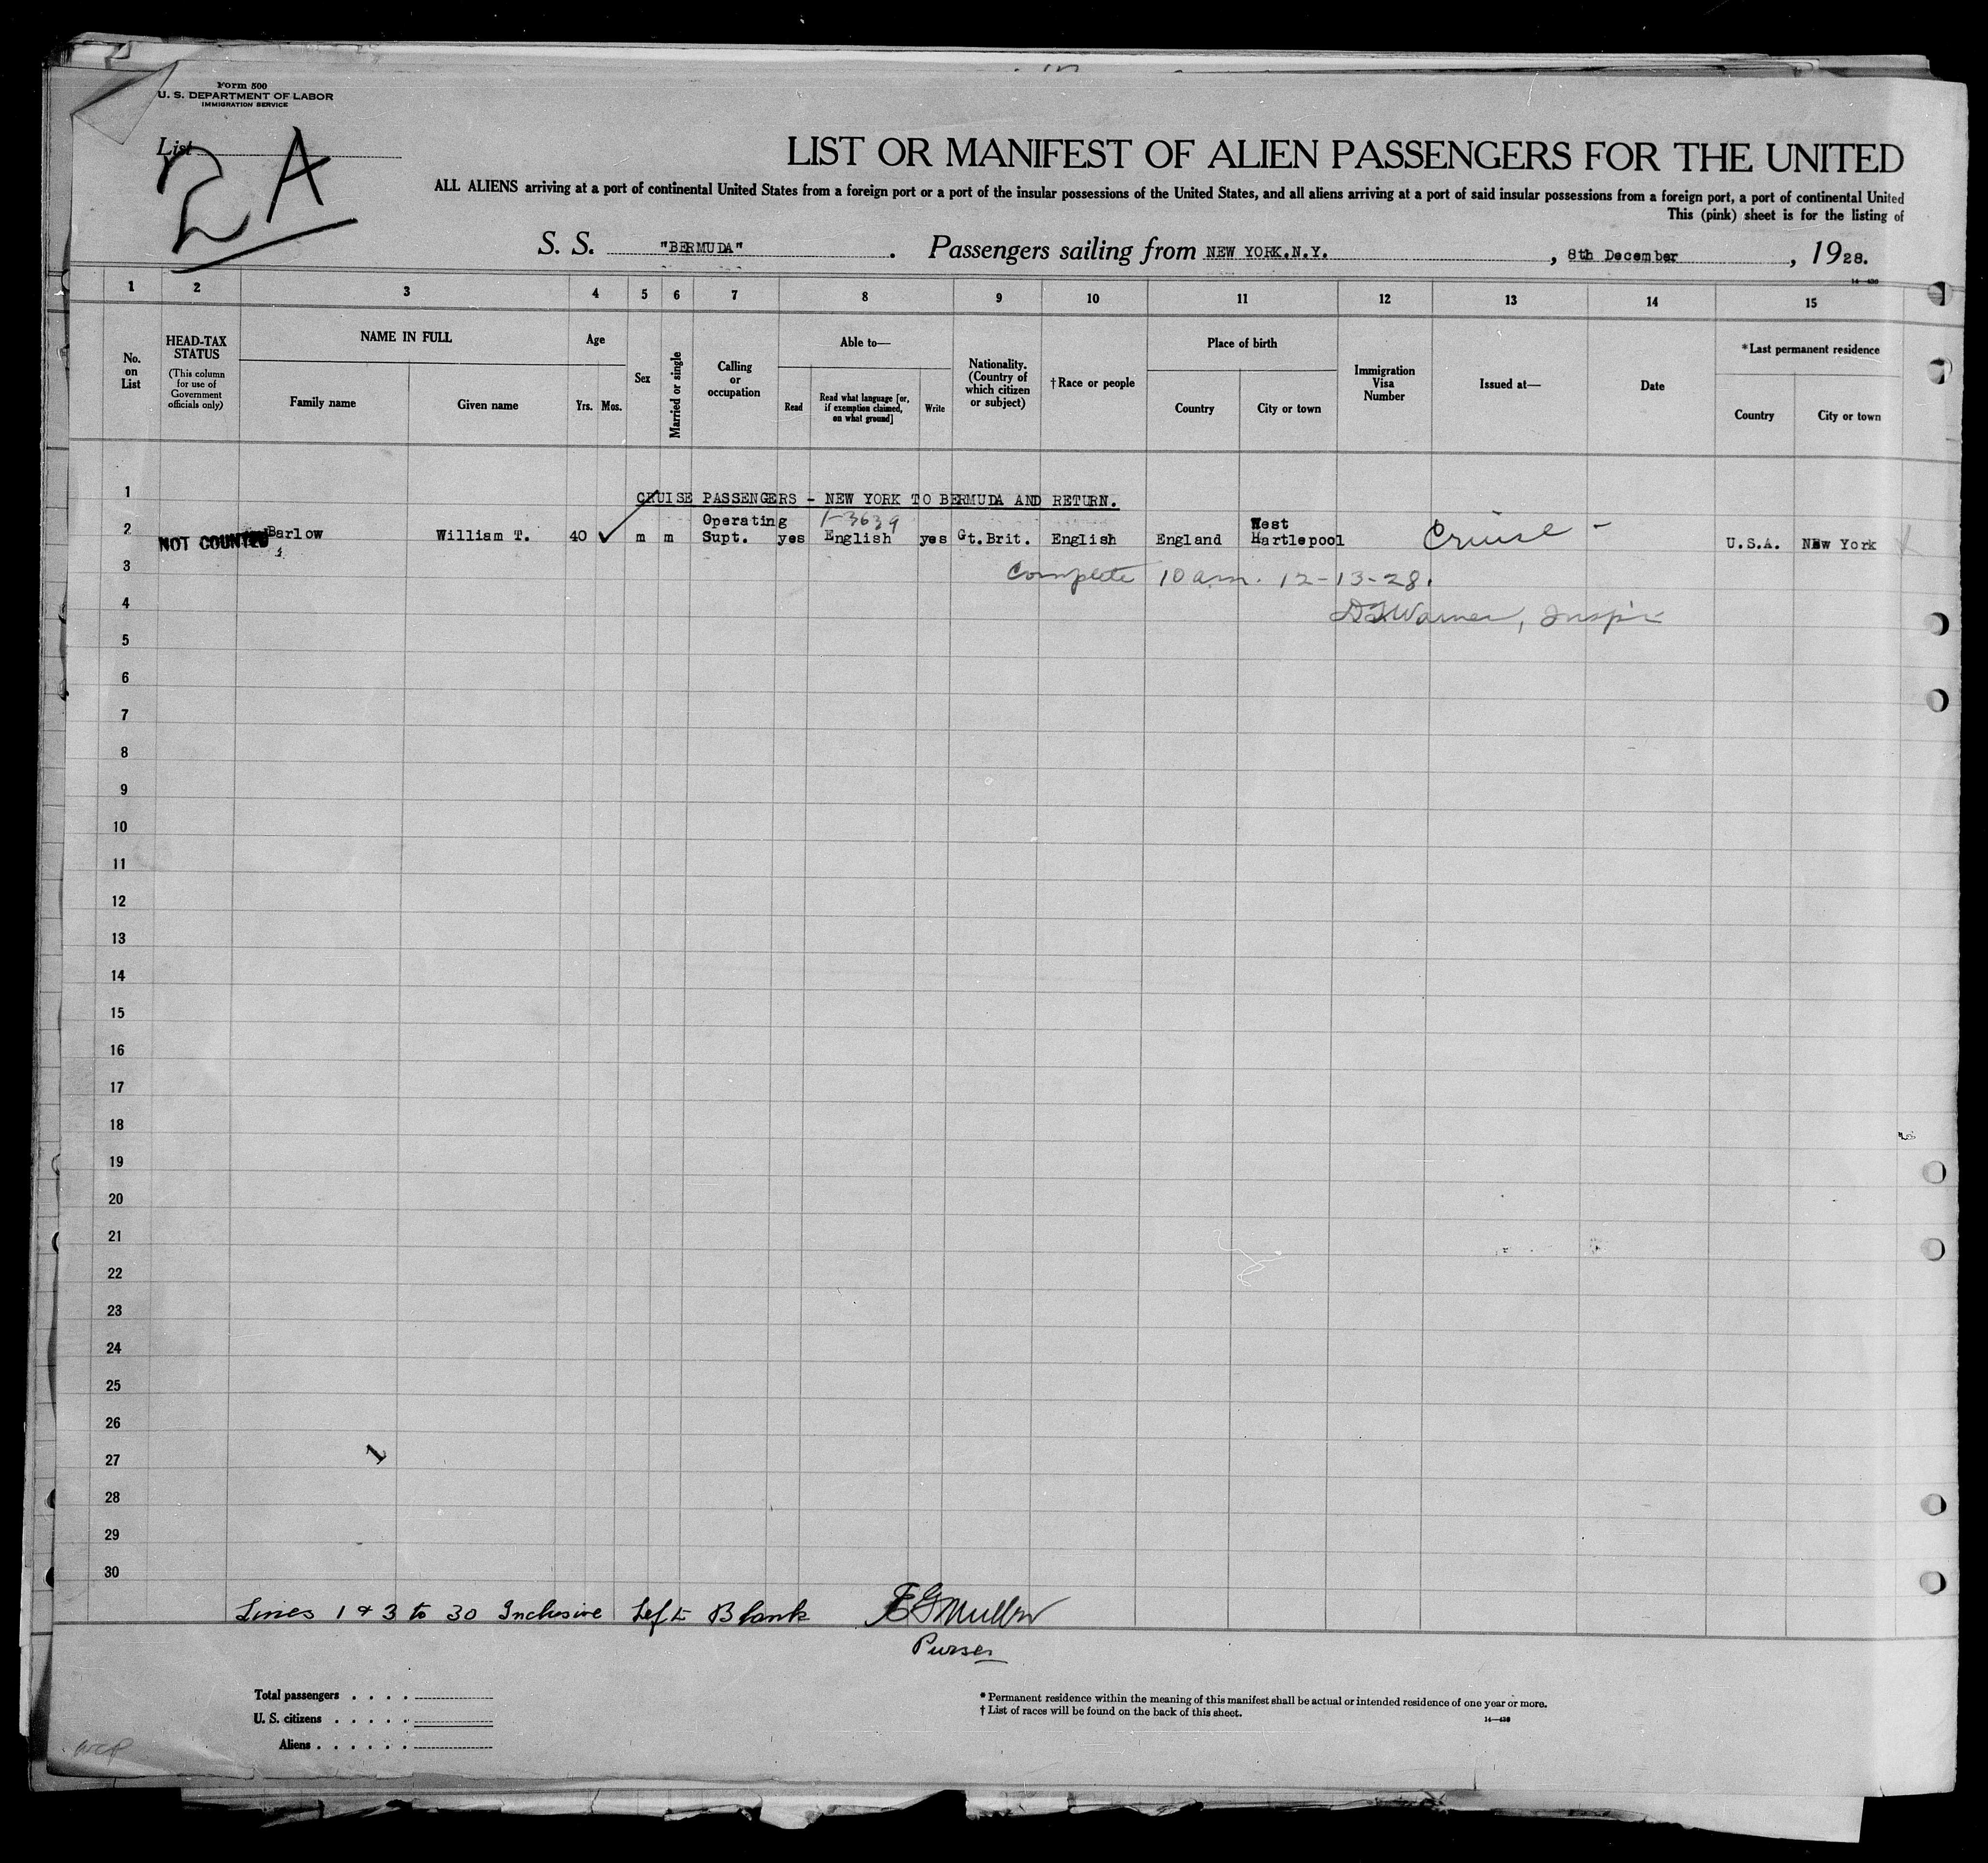 Form 500
U. S. DEPARTMENT OF LABOR
IMMIGRATION SERVICE
List
2A
LIST OR MANIFEST OF ALIEN PASSENGERS FOR THE UNITED
ALL ALIENS arriving at a port of continental United States from a foreign port or a port of the insular possessions of the United States, and all aliens arriving at a port of said insular possessions from a foreign port, a port of continental United
This (pink) sheet is for the listing of
S. S. "BERMUDA". Passengers sailing from NEW YORK.N.Y., 8th December, 1928.
14—436
1 2 3 4 5 6 7 8 9 10 11 12 13 14 15
No. on List
HEAD-TAX STATUS
(This column for use of Government officials only)
NAME IN FULL
Family name
Given name
Age
Yrs. Mos.
Sex
Married or single
Calling or occupation
Able to—
Read
Read what language [or, if exemption claimed, on what ground]
Write
Nationality. (Country of which citizen or subject)
†Race or people
Place of birth
Country
City or town
Immigration Visa Number
Issued at—
Date
*Last permanent residence
Country
City or town
1 CRUISE PASSENGERS - NEW YORK TO BERMUDA AND RETURN.
Operating 1-3639 West
2 NOT COUNTED Barlow William T. 40 ✓ m m Supt. yes English yes Gt.Brit. English England Hartlepool Cruise - U.S.A. New York
3 Complete 10 am. 12-13-28.
4 Warner, Insp'r
5
6
7
8
9
10
11
12
13
14
15
16
17
18
19
20
21
22
23
24
25
26
27 1
28
29
30
Lines 1 & 3 to 30 Inclusive Left Blank
Purser
Total passengers . . . .
U. S. citizens . . . . .
Aliens . . . . . .
* Permanent residence within the meaning of this manifest shall be actual or intended residence of one year or more.
† List of races will be found on the back of this sheet.
14—436